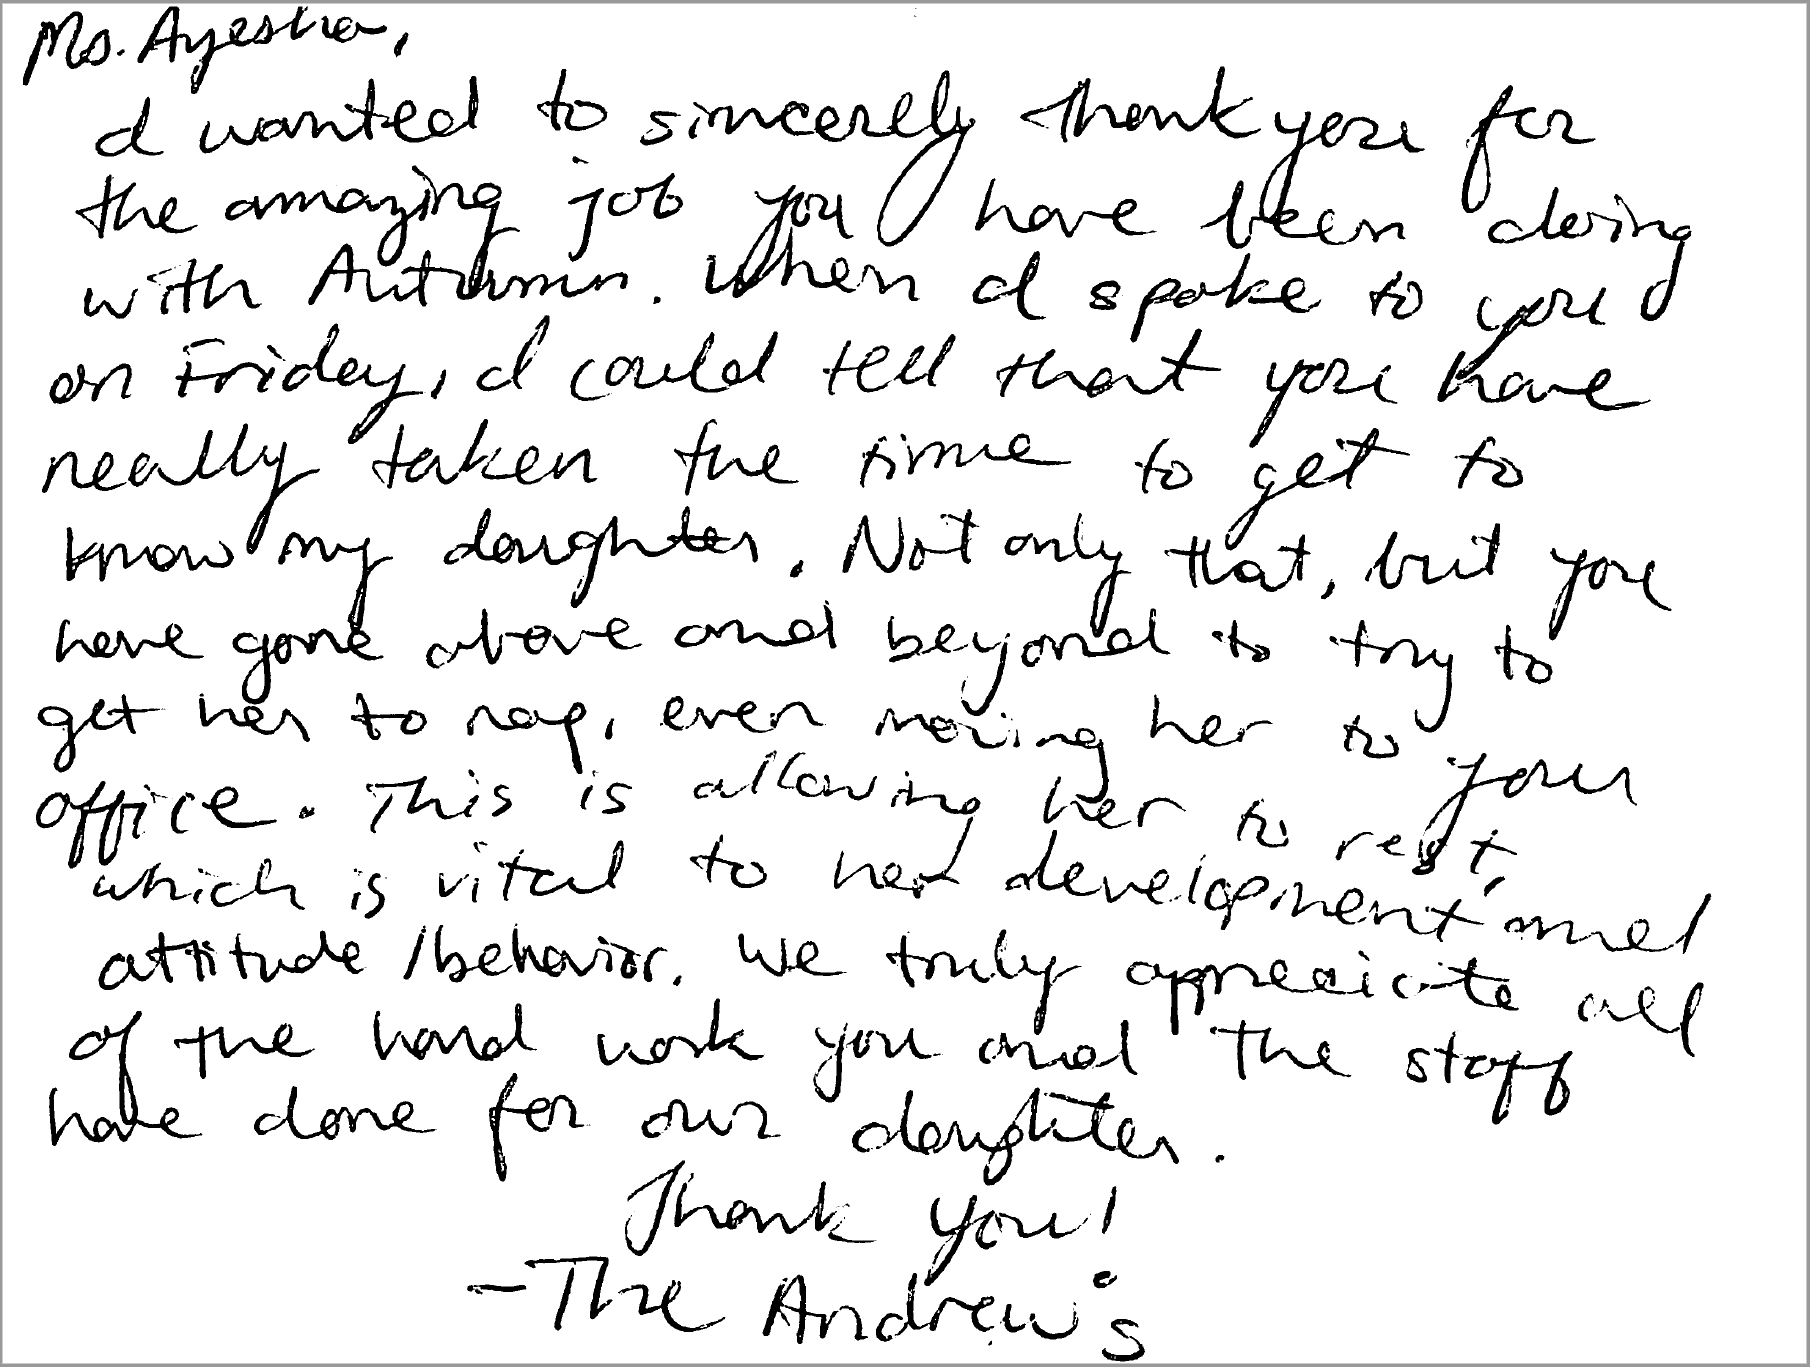 Ms. Ayesha,
I wanted to sincerely thank you for
the amazing job you have been doing
with Autumn. When I spoke to you
on Friday, I could tell that you have
really taken the time to get to
know my daughter. Not only that, but you
have gone above and beyond to try to
get her to nap, even moving her to your
office. This is allowing her to rest,
which is vital to her development and
attitude/behavior. We truly appreciate all
of the hard work you and the staff
have done for our daughter.
Thank you!
-The Andrew's